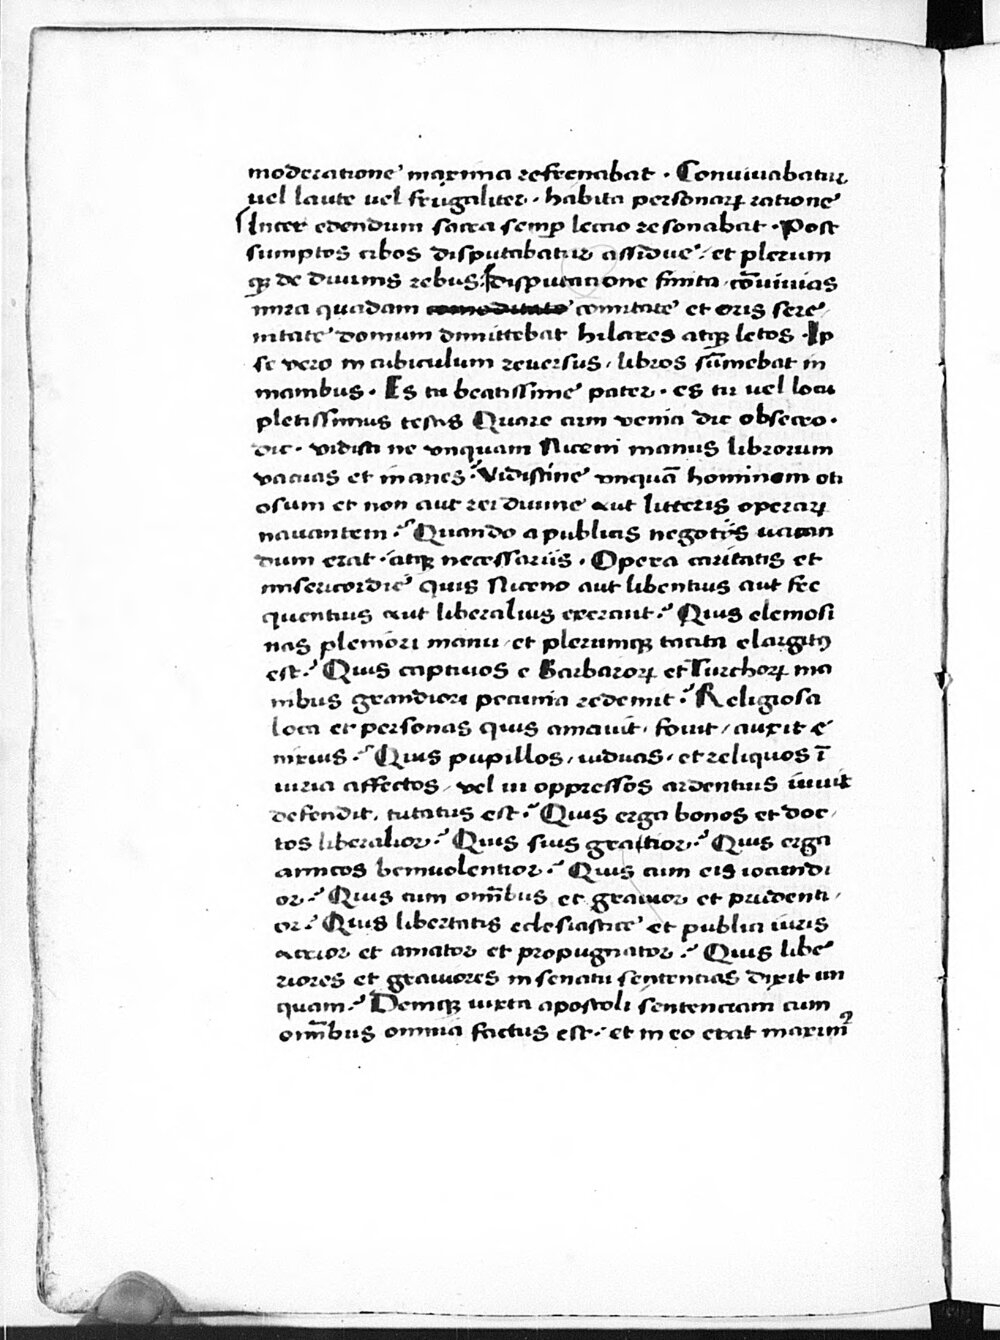 moderatione maxima refrenabat · Convivabatur
vel laute vel frugaliter · habita personarꝝ ratione
Inter edendum sacra semꝑ lectio resonabat · Post
sumptos cibos disputabatur assidue · et plerum
qꝫ de divinis rebus · Disputatione finita cōvivias
mira quadam comitate et oris sere
nitate domum dimittebat hilares atqꝫ letos · Ip
se vero in cubiculum reversus / libros sūmebat in
manibus · Es tu beatissime pater · es tu vel locu
pletissimus testis Quare cum venia dic obsecro ·
dic · vidisti ne vnquam Niceni manus librorum
vacuas et inanes · Vidistine vnquā hominem oti
osum et non aut rei divine aut litteris operaꝝ
navantem · Quando a publicis negotijs vacan
dum erat · atqꝫ necessariis · Opera caritatis et
misericordie quis Niceno aut libentius aut fre
quentius aut liberalius exeraut · Quis elemosi
nas plemori manu et plerumqꝫ tacita elargitꝰ
est · Quis captivos e Barbaroꝝ et Turchoꝝ ma
nibus grandiori pecunia redemit · Religiosa
loca et personas quis amavit / fovit / auxit e
nixius · Quis pupillos / viduas / et reliquos ī
iuria affectos / vel vi oppressos ardentius iuvit
defendit / tutatus est · Quis erga bonos et doc
tos liberalior · Quis suis gratior · Quis erga
amicos benivolentior · Quis cum eis iocundi
or · Quis cum om̄ibus et gravior et prudenti
or · Quis libertatis eclesiastice et publici iuris
acrior et amator et propugnator · Quis libe
riores et graviores in senatu sententias dixit un
quam · Deniqꝫ iuxta apostoli sententiam cum
om̄ibus omnia factus est · et in eo erat maximꝰ